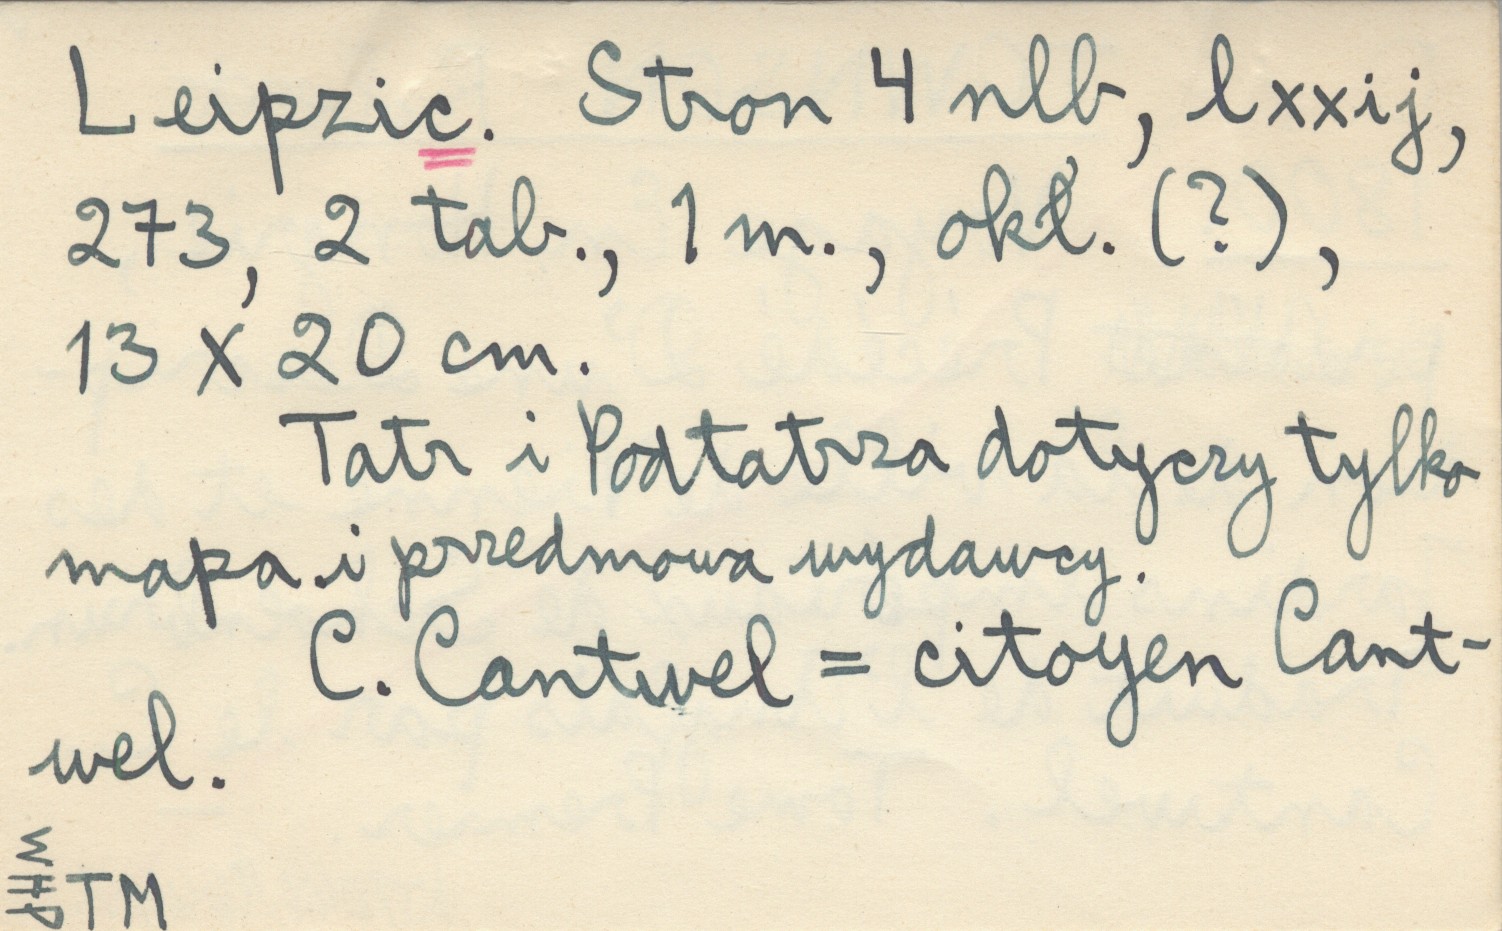 Leipzic. Stron 4 nlb, lxxij,
273, 2 tab., 1 m., okł. (?),
13 x 20 cm.
Tatr i Podtatrza dotyczy tylko
mapa i przedmowa wydawcy.
C. Cantwel = citoyen Cant-
wel.
WHP
TM